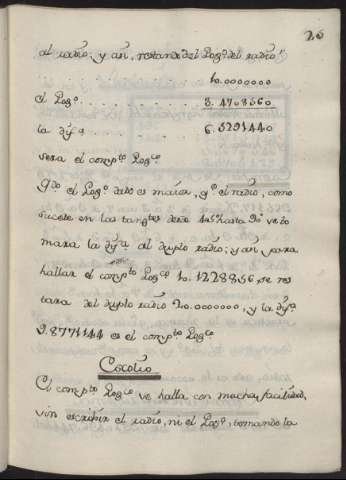 26
al radio; y asi, restando del Log.º del radio
. . . . . . . . . . 10.0000000
el Log.º . . . . . . . . 3.4708560
la dif.ª . . . . . . . . 6.5291440
sera el comp.to Log.co
Q.do el Log.º dado es maior, q.e el radio, como
sucede en las tang.tes desde 45.º hasta 90.º se to
mara la dif.ª al duplo radio; y asi para
hallar el comp.to Log.co 10.1228856 se res
tara del duplo radio 20.0000000, y la dif.ª
9.8771144 es el comp.to Log.co
Escolio
El comp.to Log.co se halla con mucha facilidad,
sin escribir el radio, ni el Log.º, tomando la